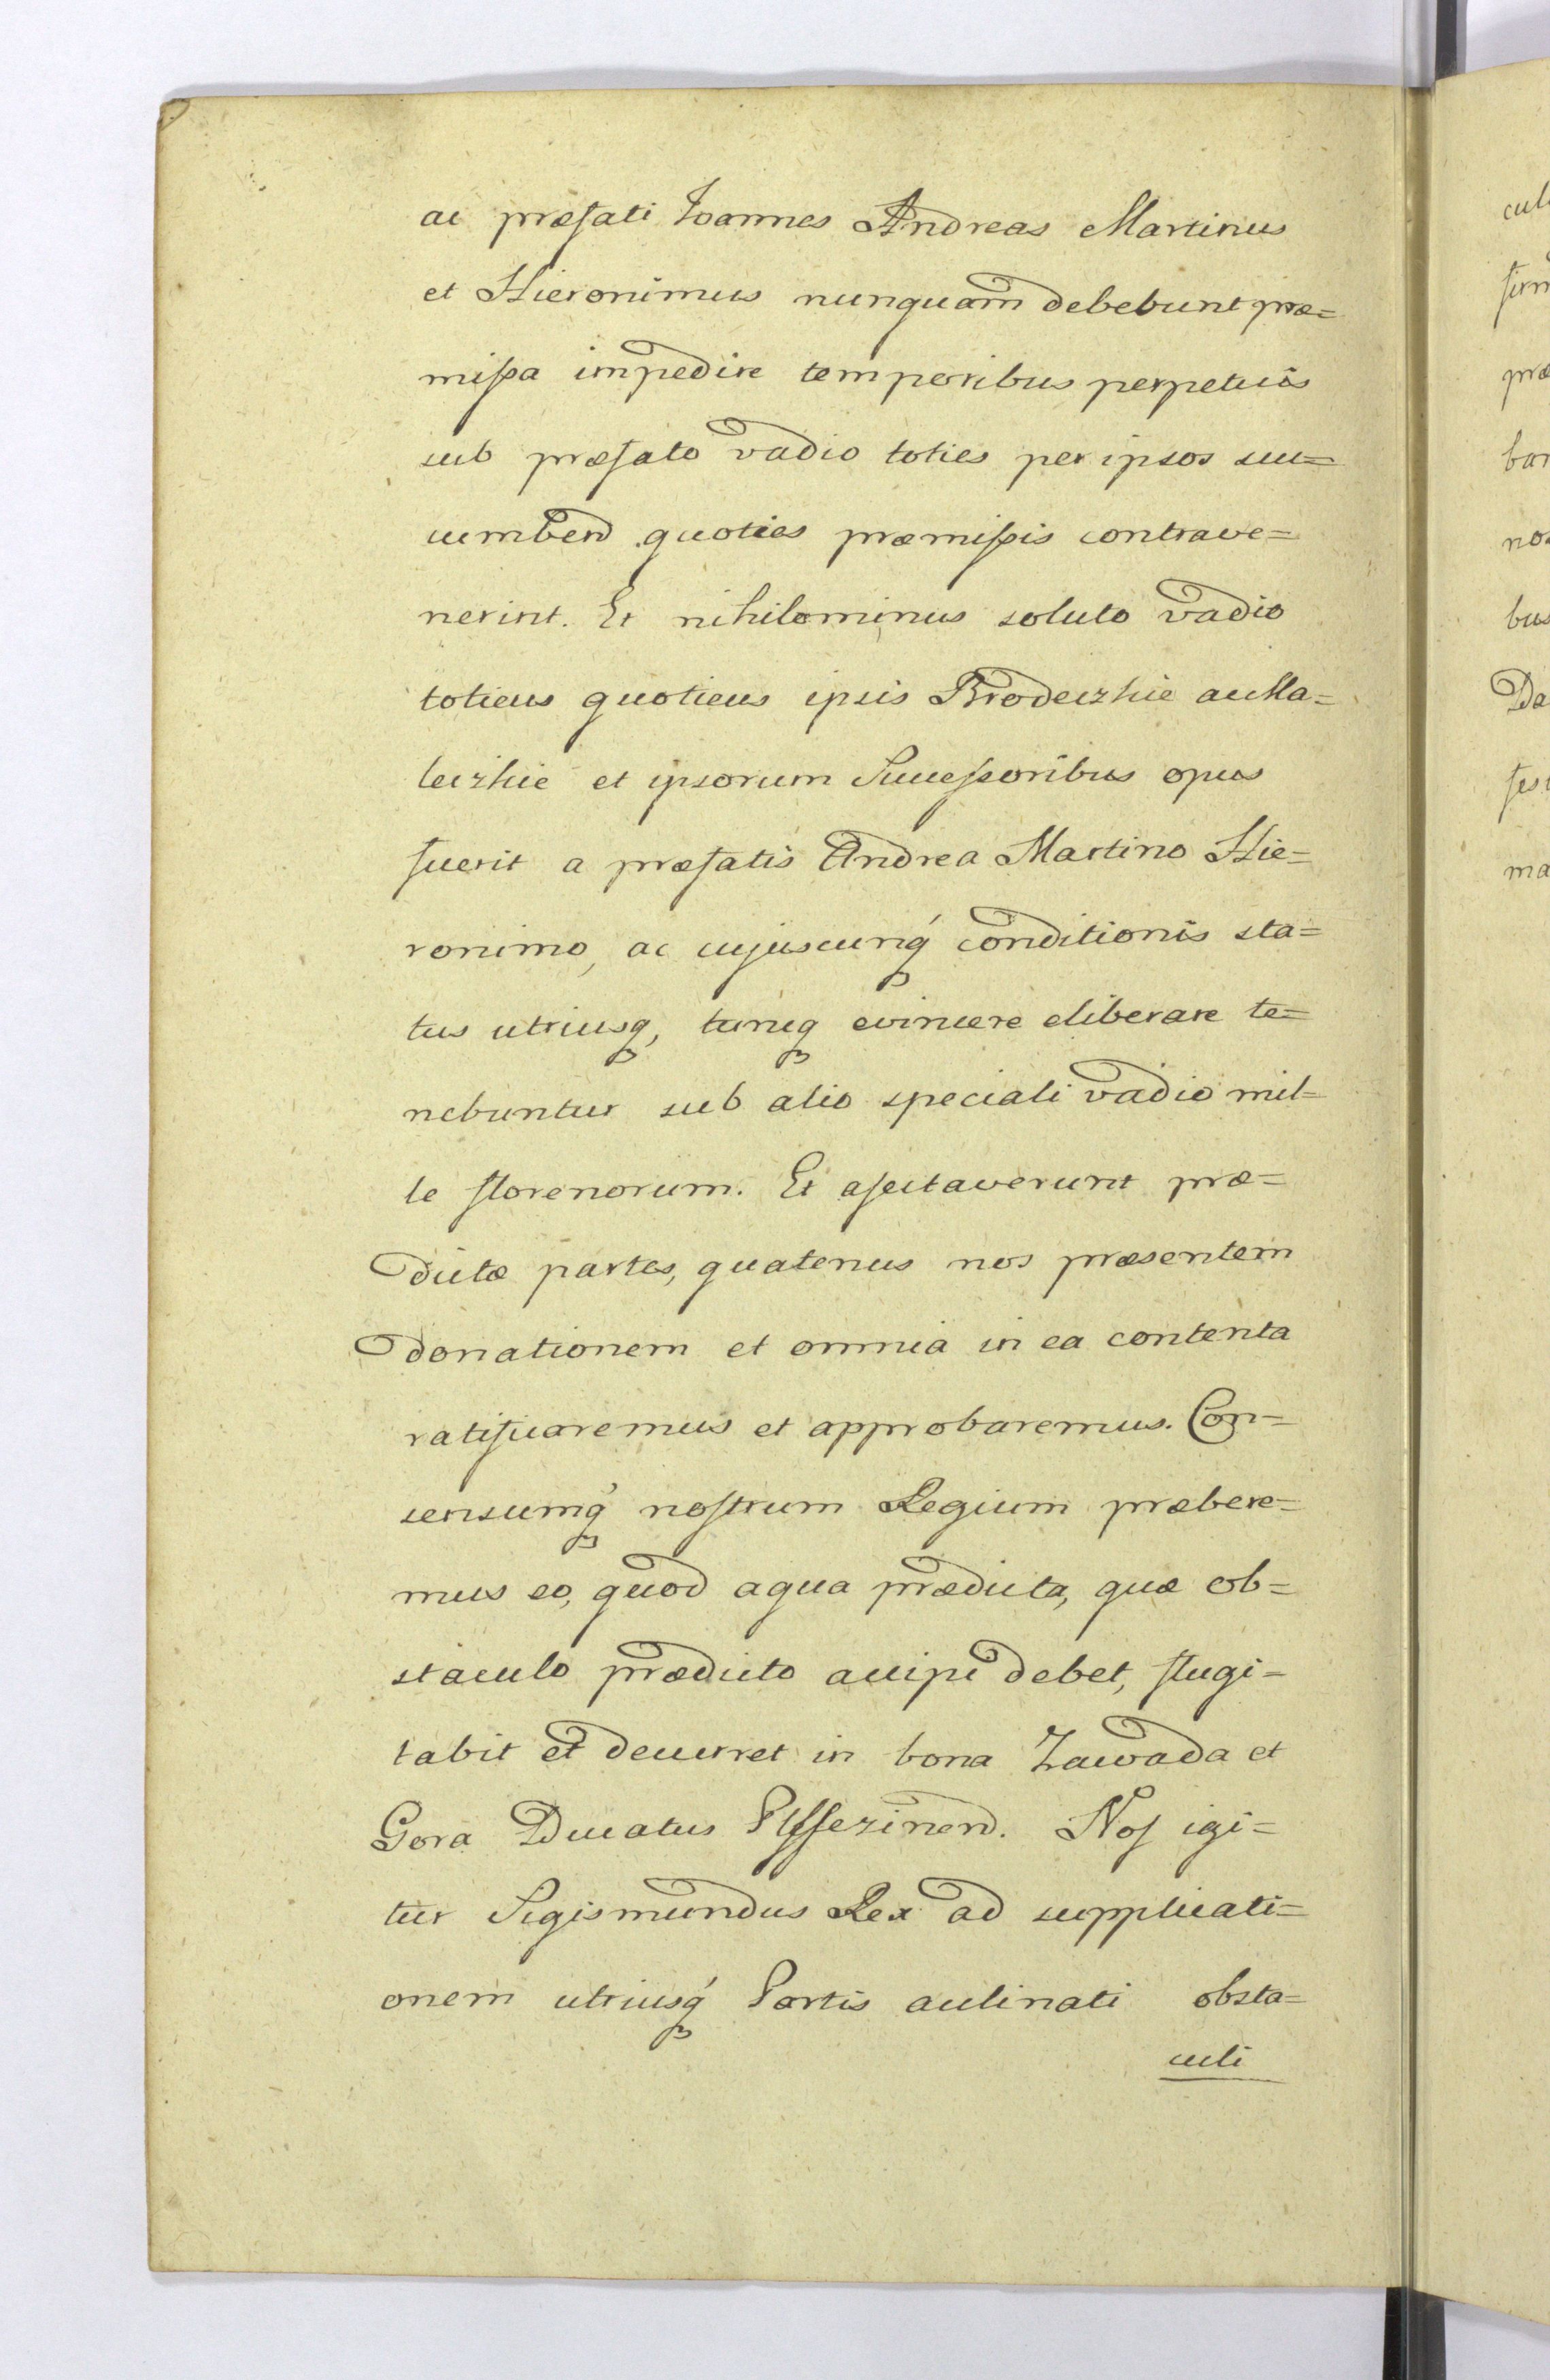 ac præfati Joannes Andreas Martinus
et Hieronimus nunquam debebunt præ=
missa impedire temporibus perpetuis
sub præfato vadio toties per ipsos suc=
cumbend quoties præmissis contrave=
nerint. Et nihilominus soluto vadio
totiens quotiens ipsis Brodeczkie
leczkie et ipsorum Successoribus opus
fuerit a præfatis Andrea Martino Hie=
ronimo, ac cujuscunq́ conditionis sta=
tus utriusq, evincere eliberare te=
nebuntur sub alio speciali vadio mil=
le florenorum. Et afectaverunt præ=
dictæ partes, quatenus nos præsentem
donationem et omnia in ea contenta
ratificaremus et approbaremus. Con=
sensumq́ nostrum Regium præbere=
mus eo, quod aqua prædicta, quæ ob=
staculo prædicto accipi debet, flugi=
tabit et decurret in bona Zawada et
Gora Ducatus Pssezinend. Nos igi=
tur Sigismundus Rex ad supplicati=
onem utriusq́ Partis aclinati obsta=
culi
cul
firm
præ
bar
nos
bus
Da
fest
ma